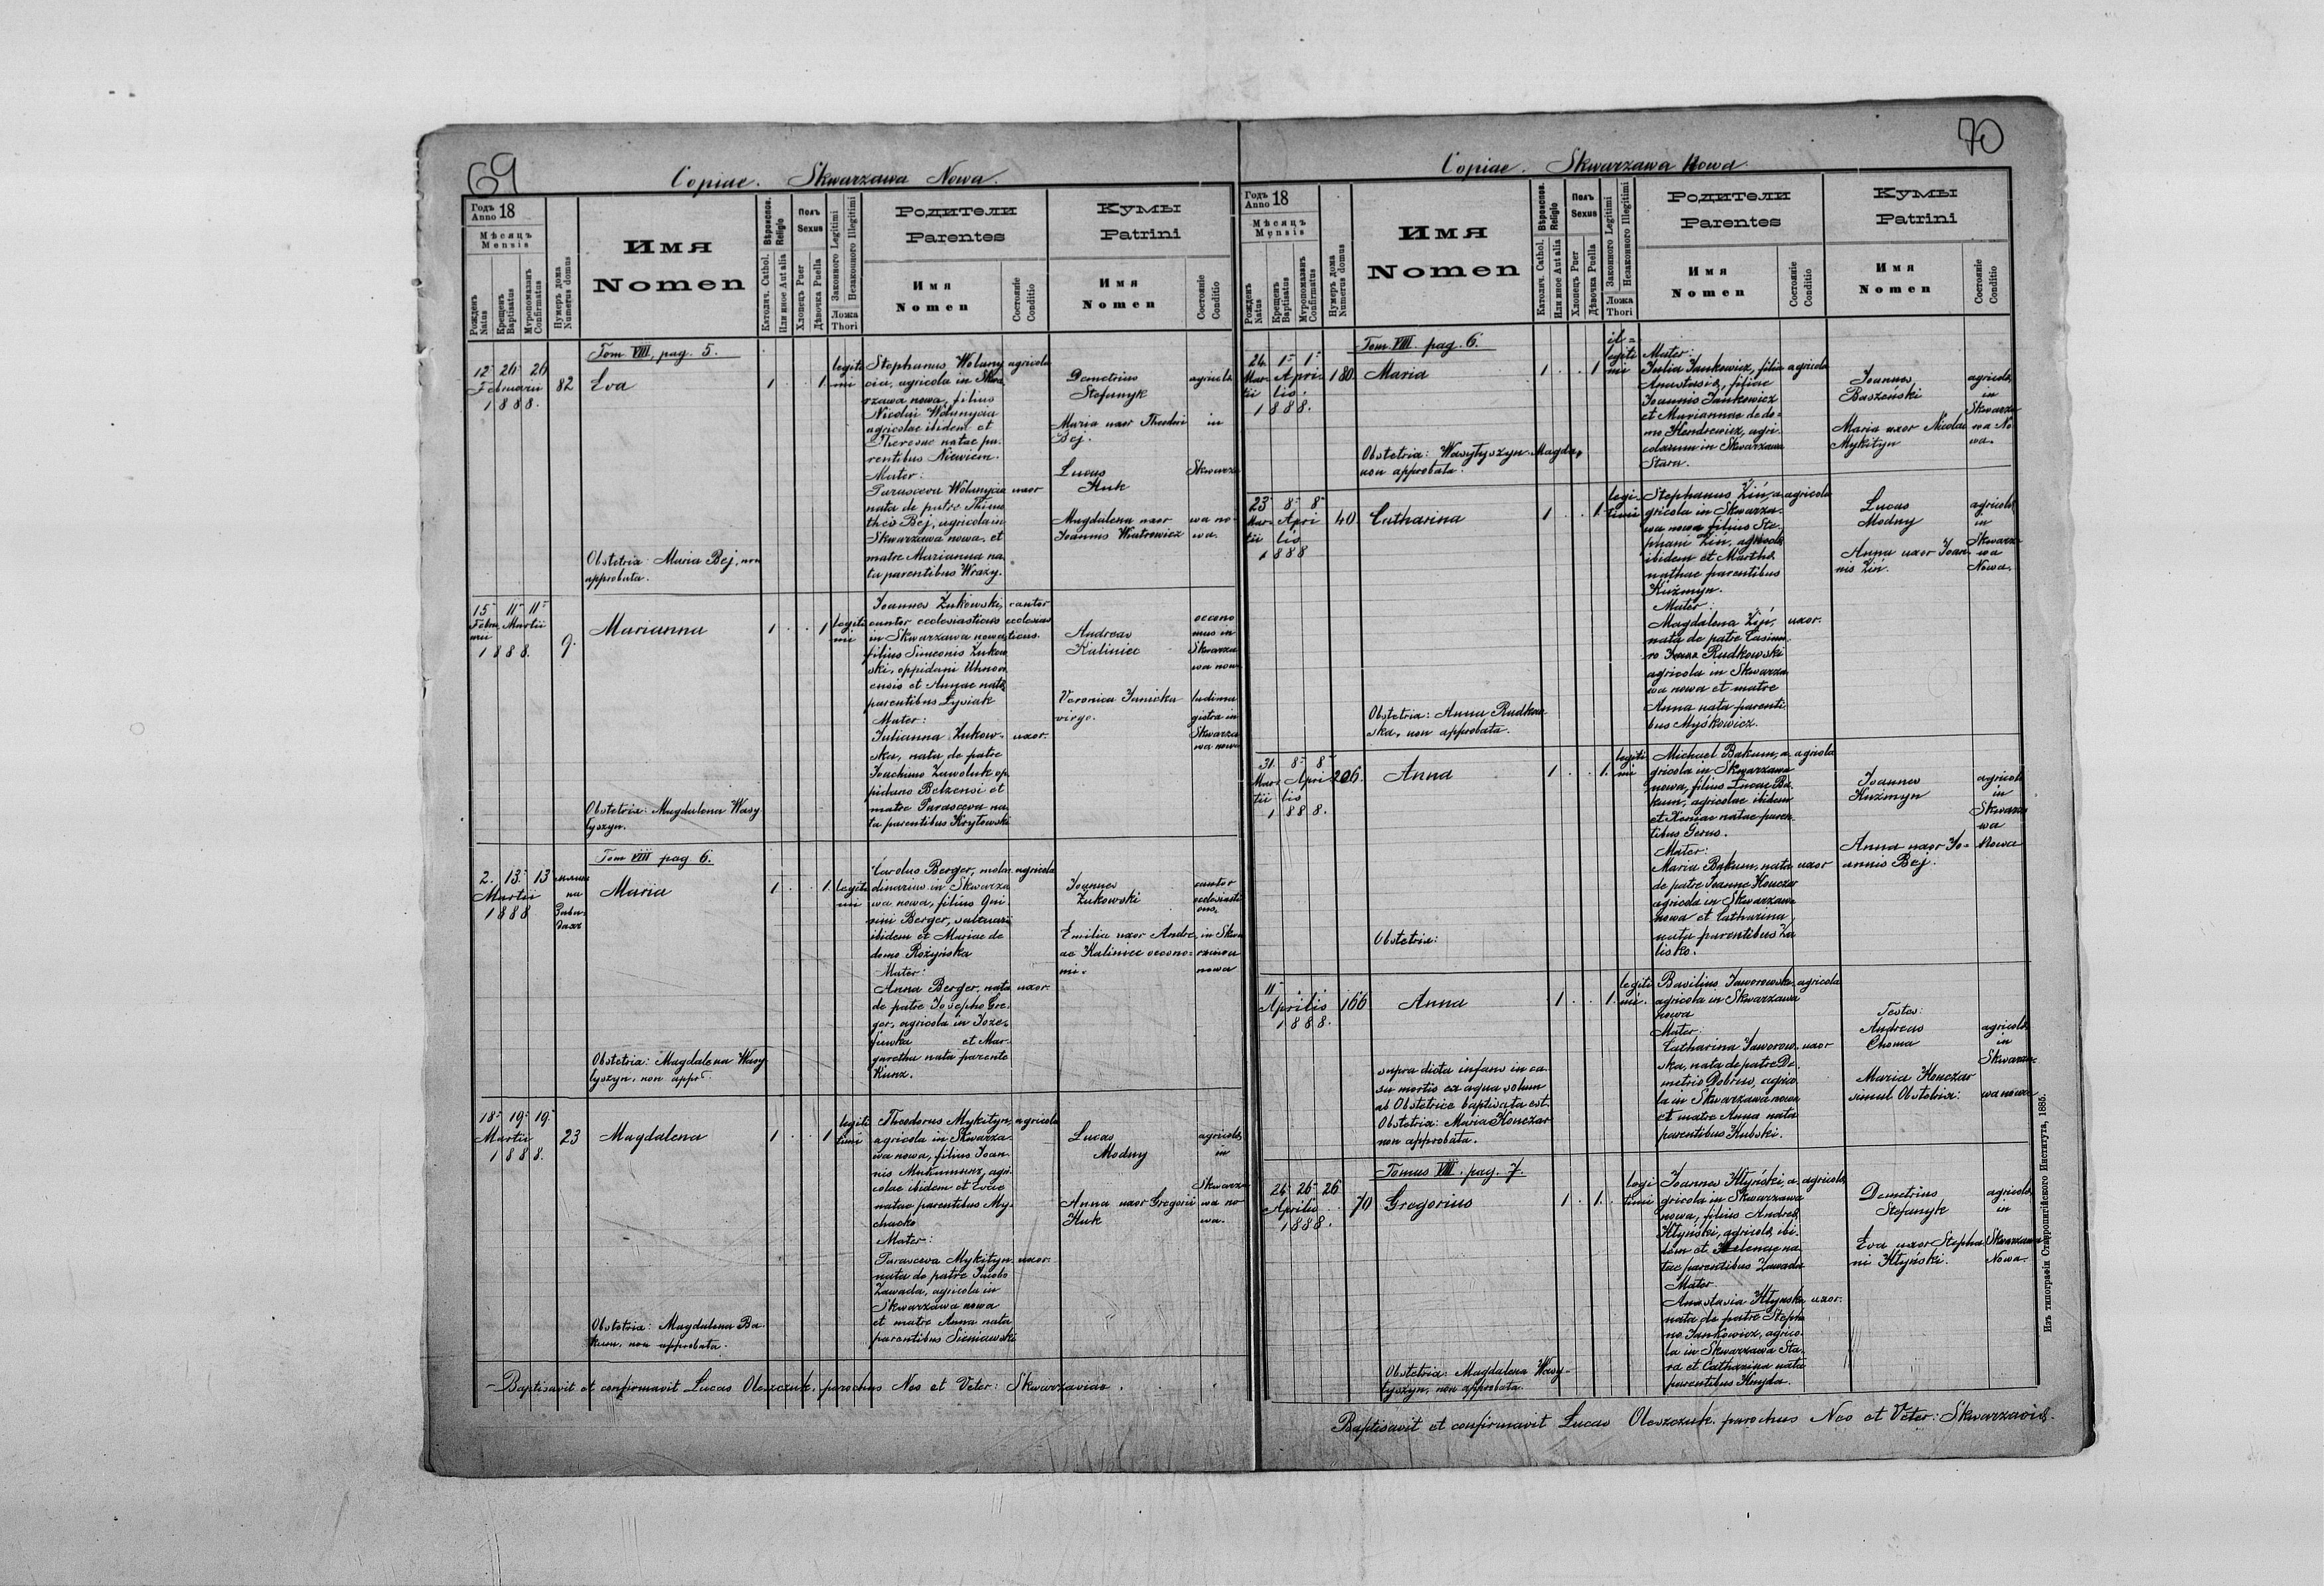 69
Copiae. Skwarzawa Nowa.
Годъ Anno 18
Мѣсяцъ Mensis
Рожденъ Natus
Крещенъ Baptisatus
Мѵропомазанъ Confirmatus
Нумеръ дома Numerus domus
Имя
Nomen
Вѣроиспов. Religio
Католич. Cathol.
Или иное Aut alia
Полъ Sexus
Хлопецъ Puer
Дѣвочка Puella
Законного Legitimi
Незаконного Illegitimi
Ложа Thori
Родители
Parentes
Имя
Nomen
Состояніе Conditio
Кумы
Patrini
Имя
Nomen
Состояніе Conditio
Tom. VIII, pag. 5.
12 26 26
Februarii
1888.
82
Eva
1 . . 1
legiti
mi
Stephanus Wolany
cia, agricola in Skwa
rzawa nowa, filius
Nicolai Wolanycia
agricolae ibidem et
Theresae natae pa-
rentibus Niewiem.
Mater:
Parasceva Wolanycia
nata de patre Thimo
theo Bej, agricola in
Skwarzawa nowa, et
matre Marianna na
ta parentibus Wrazy.
agricola
uxor
Demetrius
Stefanyk
Maria uxor Theodori
Bej.
Lucas
Huk
Magdalena uxor
Joannis Wiatrowicz
agricolae
in
Skwarza
wa no-
wa.
Obstetrix: Maria Bej, non
approbata.
15 11 11
Februa Martii
rii
1888.
9.
Marianna
1 . . 1
legiti
mi
Joannes Zukowski,
cantor ecclesiasticus
in Skwarzawa nowa,
filius Simeonis Zukow
ski, oppidani Uhnov
ensis et Annae natae
parentibus Lysiak
Mater:
Julianna Zukow-
ska, nata de patre
Joachimo Zawoluk op
pidano Belzensi et
matre Parasceva na
ta parentibus Krytowski
cantor
ecclesias
ticus.
uxor.
Andreas
Kaliniec
Veronica Janicka
virgo.
oecono
mus in
Skwarza
wa nowa
ludima
gistra in
Skwarza
wa nowa
Obstetrix: Magdalena Wasy
lyszyn.
Tom VIII pag 6.
2. 13 13
Martii
1888
Maria
1 . . 1
legiti
mi
Carolus Berger, molen
dinarius in Skwarza
wa nowa, filius Qui
rini Berger, saltuarii
ibidem et Mariae de
domo Rożyńska
Mater:
Anna Berger, nata
de patre Josepho Gre-
ger, agricola in Joze-
fuwka et Mar-
garetha nata parente
Kunz.
agricola
uxor.
Joannes
Zukowski
Emilia uxor Andre
ae Kaliniec oecono-
mi.
cantor
ecclesiasti
cus,
in Skwa
rzawa
nowa
Obstetrix: Magdalena Wasy
lyszyn, non appr.
18 19 19
Martii
1888.
23
Magdalena
1 . . 1
legi
timi
Theodorus Mykityn,
agricola in Skwarza
wa nowa, filius Joan
nis, agri-
colae ibidem et Evae
natae parentibus My-
chacko
Mater:
Parasceva Mykityn,
nata de patre Jacobo
Zawada, agricola in
Skwarzawa nowa
et matre Anna nata
parentibus Sieniawski
agricola
uxor.
Lucas
Modny
Anna uxor Gregorii
Huk
agricolae
in
Skwarza
wa no-
wa.
Obstetrix: Magdalena Ba-
kum, non approbata.
Baptisavit et confirmavit Lucas Oleszczuk, parochus Neo et Veter: Skwarzaviae.
70
Copiae. Skwarzawa Nowa.
Годъ Anno 18
Мѣсяцъ Mensis
Рожденъ Natus
Крещенъ Baptisatus
Мѵропомазанъ Confirmatus
Нумеръ дома Numerus domus
Имя
Nomen
Вѣроиспов. Religio
Католич. Cathol.
Или иное Aut alia
Полъ Sexus
Хлопецъ Puer
Дѣвочка Puella
Законного Legitimi
Незаконного Illegitimi
Ложа Thori
Родители
Parentes
Имя
Nomen
Состояніе Conditio
Кумы
Patrini
Имя
Nomen
Состояніе Conditio
Tom. VIII. pag. 6.
24 1 1
Mar- Apri-
tii lis.
1888.
180.
Maria
1 . . 1
il-
legiti
mi
Mater:
Julia Jankowicz, filia
Anastasiae, filiae
Joannis Jankowicz
et Mariannae de do-
mo Hendrewicz, agri-
colarum in Skwarzawa
Stara.
agricola
Joannes
Baszeński
Maria uxor Nicolai
Mykityn
agricolae
in
Skwarza
wa No
wa.
Obstetrix: Wasylyszyn Magda,
non approbata.
23 8 8
Mar- Apri
tii lis
1888
40
Catharina
1 . . 1.
legi-
timi
Stephanus Zin, a-
gricola in Skwarza-
wa nowa filius Ste-
phani Zin, agricolae
ibidem et Marthae
nathae parentibus
Kuźmyn.
Mater:
Magdalena Zin,
nata de patre Casimi
ro Rudkowski
agricola in Skwarza
wa nowa et matre
Anna nata parenti
bus Myśkowicz.
agricola
uxor.
Lucas
Modny
Anna uxor Joan-
nis Zin.
agricolae
in
Skwarza
wa
Nowa.
Obstetrix: Anna Rudkow-
ska, non approbata.
31 8 8
Mar- Apri
tii lis
1888.
206.
Anna
1 . . 1.
legiti
mi
Michael Bakum, a-
gricola in Skwarzawa
nowa, filius Lucae Ba-
kum, agricolae ibidem
et Xeniae natae paren-
tibus Serus.
Mater:
Maria Bakum, nata
de patre Joanne Honczar
agricola in Skwarzawa
nowa et Catharina,
nata parentibus Za
lisko.
agricola
uxor
Joannes
Kuźmyn
Anna uxor Jo-
annis Bej.
agricolae
in
Skwarza
wa
Nowa
Obstetrix:
11 . .
Aprilis
1888.
166
Anna
1 . . 1.
legiti
mi.
Basilius Jaworowski,
agricola in Skwarzawa
nowa
Mater:
Catharina Jaworow-
ska, nata de patre De-
metrio Dobrus, agrico
la in Skwarzawa nowa
et matre Anna nata
parentibus Kubski.
agricola
uxor
Testes:
Andreas
Choma
Maria Honczar
simul Obstetrix:
agricolae
in
Skwarza-
wa nowa
supra dicta infans in ca-
su mortis ex aqua solum
ab Obstetrice baptisata est.
Obstetrix: Maria Honczar
non approbata.
Tomus VIII. pag. 7.
26 26 26
Aprilis
1888.
70
Gregorius
1 . 1. .
legi
timi
Joannes Klyński, a-
gricola in Skwarzawa
nowa, filius Andreae
Klyński, agricolae ibi-
dem et Helenae na-
tae parentibus Zawada
Mater
Anastasia Klynska
nata de patre Stepha
no Jankowicz, agrico-
la in Skwarzawa Sta-
ra et Catharina nata
parentibus Knyda.
agricola
uxor.
Demetrius
Stefanyk
Eva uxor Stepha
ni Klyński.
agricolae
in
Skwarzawa
Nowa.
Obstetrix: Magdalena Wasy-
lyszyn, non approbata.
Baptisavit et confirmavit Lucas Oleszczuk, parochus Neo et Veter: Skwarzaviae.
Изъ типографіи Ставропигійского Института, 1885.